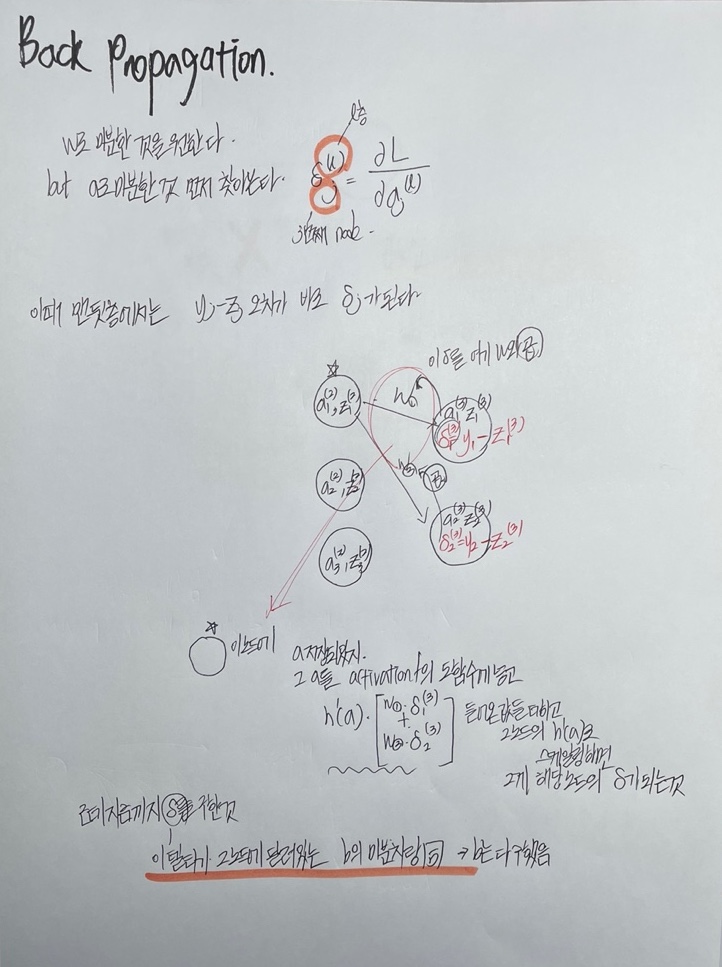 Back Propagation.
l층
w로 미분한 것을 원한다.
but a로 미분한 것 먼저 찾아본다.
δj(l) = ∂L / ∂aj(l)
j번째 node.
이때 맨 뒷층에서는 yj-zj 오차가 바로 δj가 된다.
이 δ를 여기 w와 곱
☆
a1(2), z1(2)
w①
a1(3) z1(3)
δ1(3)= y1-z1(3)
a2(2), z2(2)
w② 곱
a2(3) z2(3)
δ2(3)=y2-z2(3)
a3(2), z3(2)
☆
이 노드에
a 저장되있지.
그 a를 activation f의 도함수에 넣고
h'(a)· [ w①·δ1(3) + w②·δ2(3) ]
들어온 값들 더하고
그 노드의 h'(a)로
스케일링하면
그게 해당노드의 δ가 되는것
근데 지금까지 δ를 구한것
이 델타가 그 노드에 달려있는 b의 미분이랑 同 → b는 다 구했음